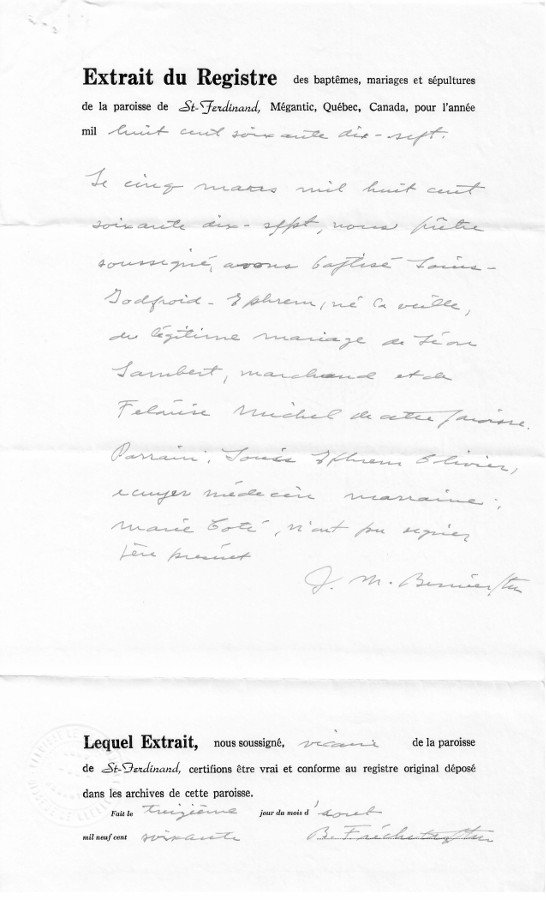 Extrait du Registre des baptêmes, mariages et sépultures
de la paroisse de St-Ferdinand, Mégantic, Québec, Canada, pour l'année
mil huit cent soixante dix-sept.
Le cinq mars mil huit cent
soixante dix-sept, nous prêtre
soussigné, avons baptisé Louis-
Godfroid-Ephrem, né la veille,
du légitime mariage de Léon
Lambert, marchand et de
Michel de cette paroisse.
Parrain; Louis Ephrem Olivier,
ecuyer médecin marraine;
Marie Coté, n'ont pu signer,
père présent
J. M. Bernier, ptre
Lequel Extrait, nous soussigné, vicaire de la paroisse
de St-Ferdinand, certifions être vrai et conforme au registre original déposé
dans les archives de cette paroisse.
Fait le treizième jour du mois d'aout
mil neuf cent soixante B. Fréchette, ptre